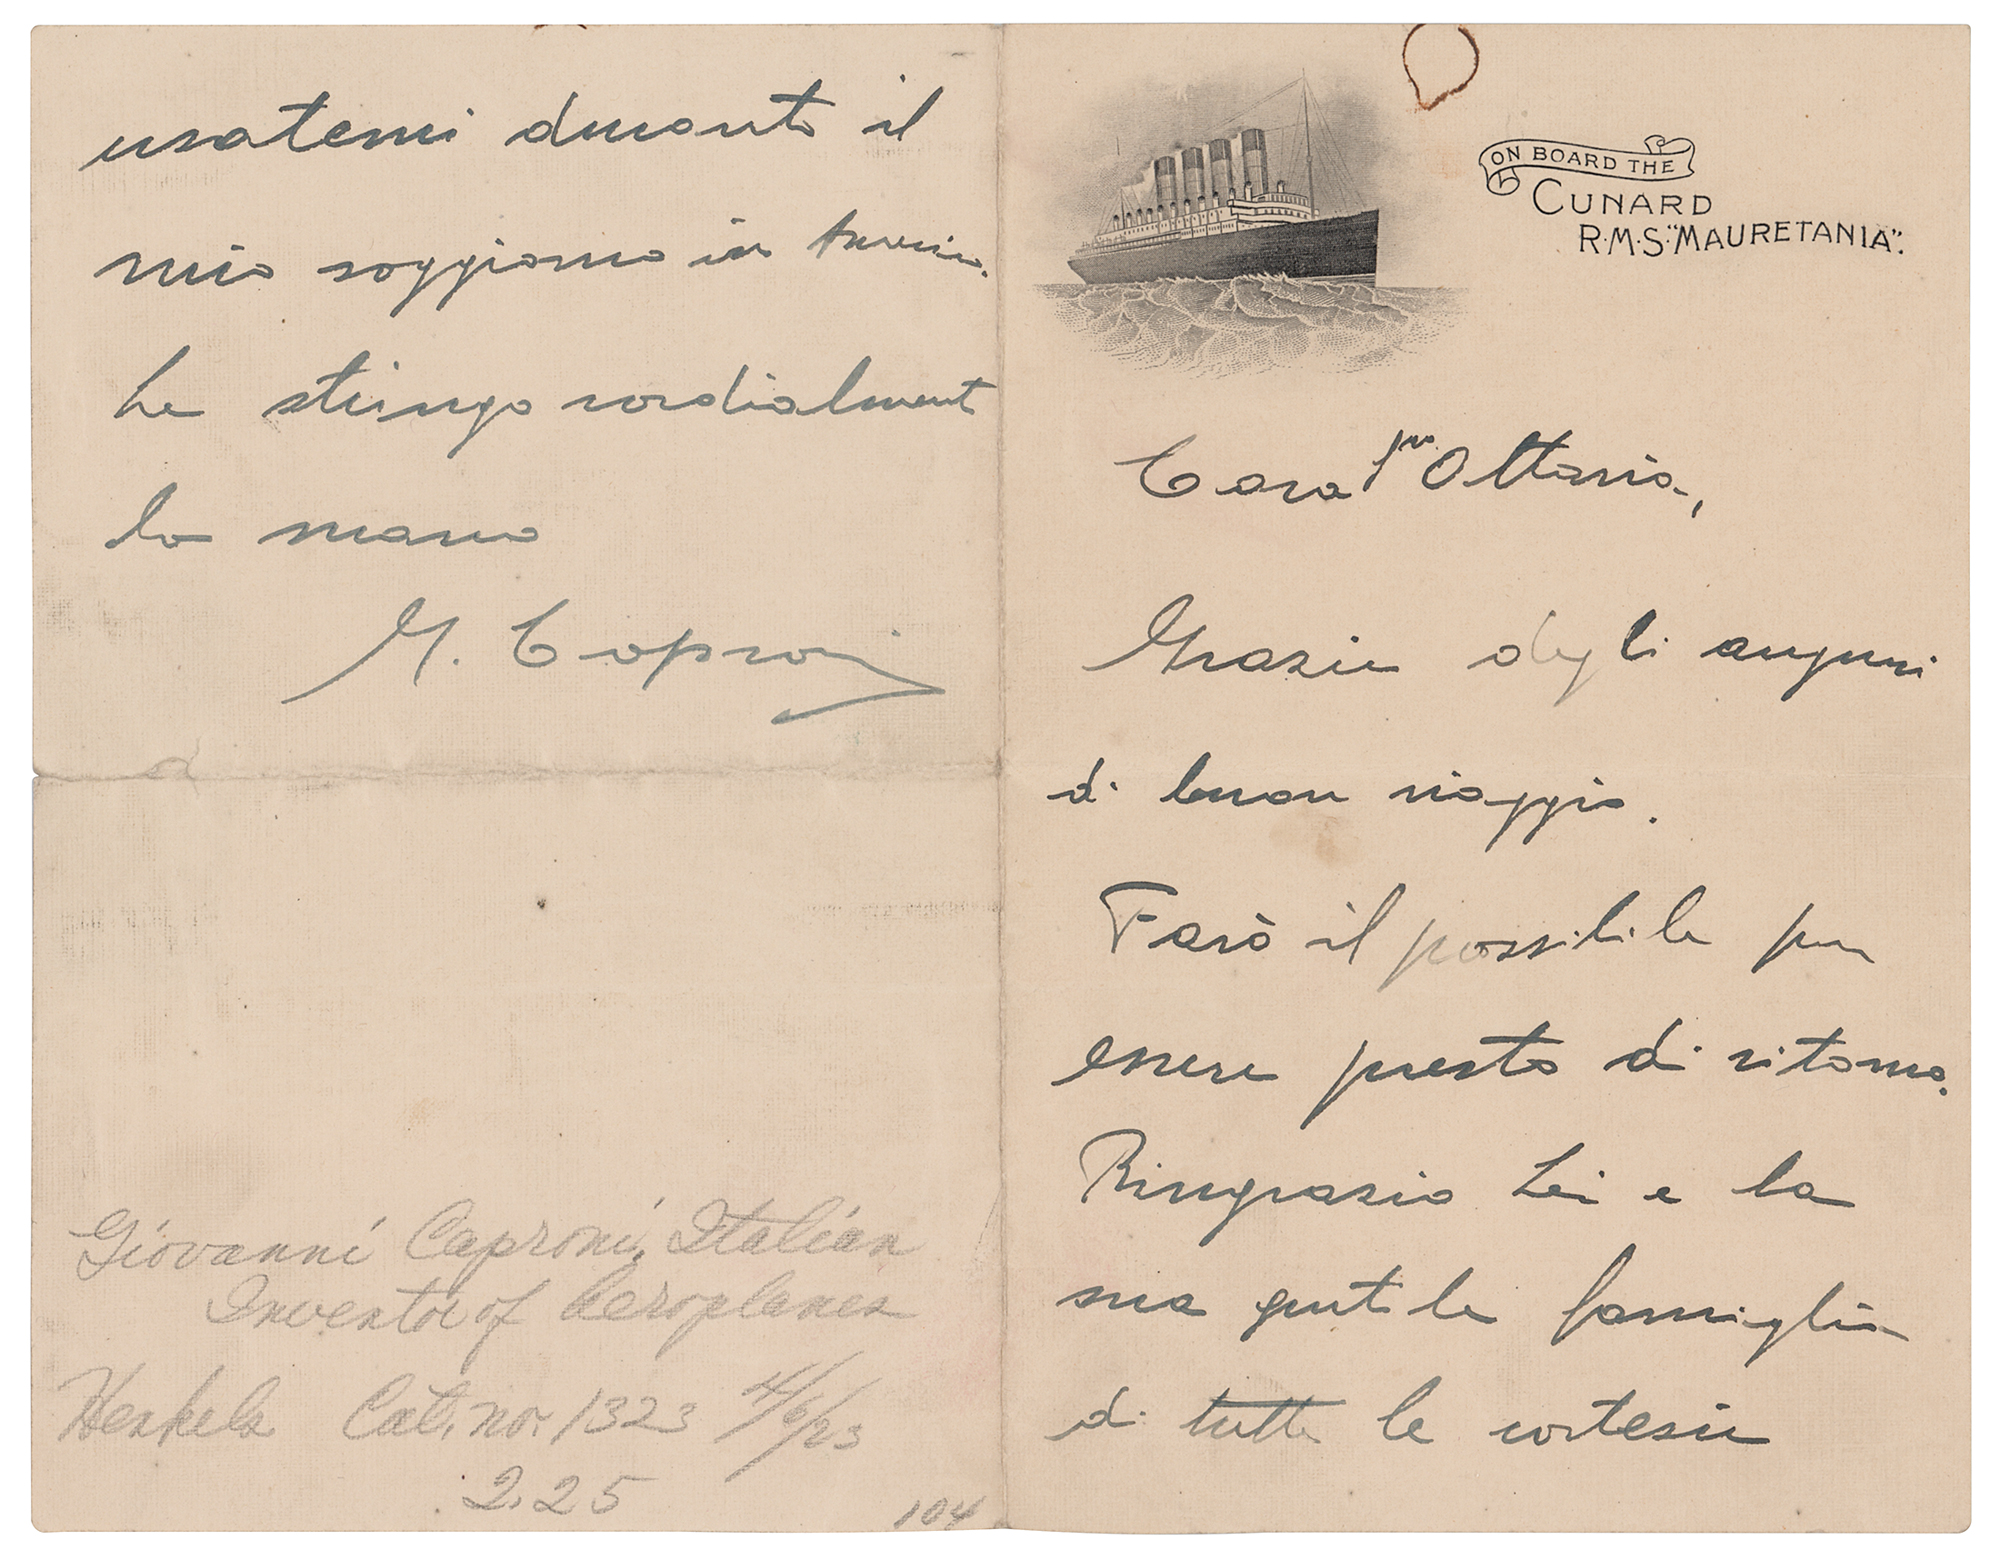 ON BOARD THE
CUNARD
R.M.S. "MAURETANIA".
Cara Ottavia,
Grazie degli auguri
di buon viaggio.
Farò il possibile per
essere presto di ritorno.
Ringrazio Lei e la
sua gentile famiglia
di tutte le cortesie
usatemi durante il
mio soggiorno in
Le stringo cordialment
la mano
G. Caproni
Giovanni Caproni, Italian
Inventor of Aeroplanes
Henkels Cat. no. 1323 4/6/23
2.25
104